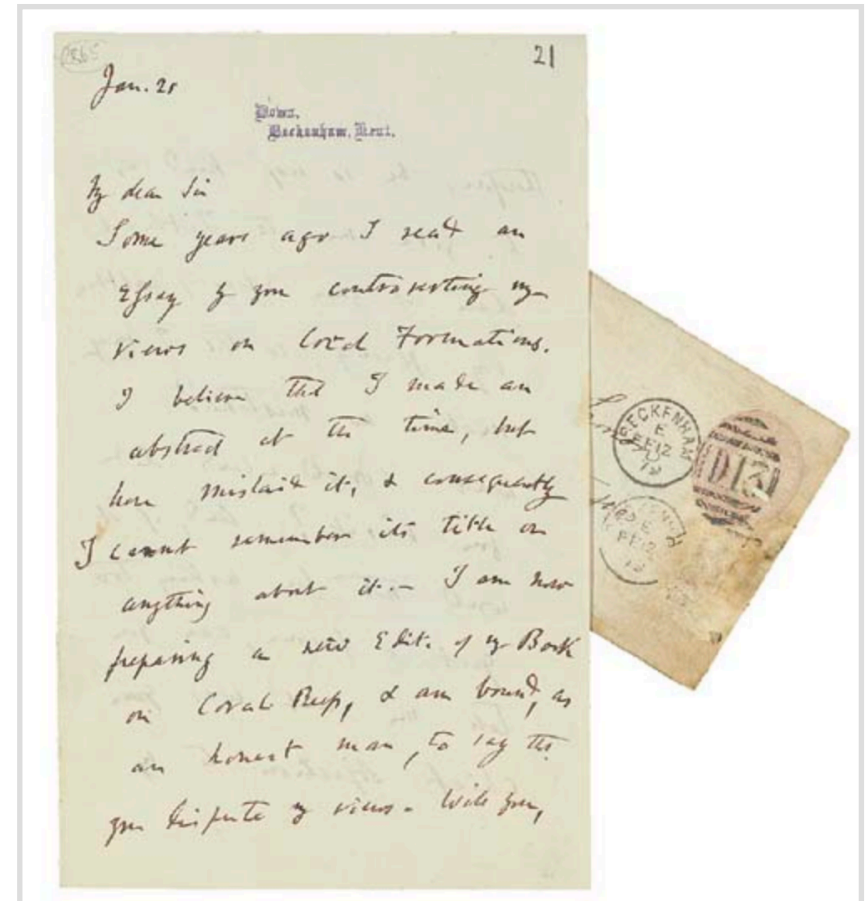 1865
21
Jan. 21
Down,
Beckenham, Kent.
My dear Sir
Some years ago I read an
Essay by you controverting my
views on Coral Formations.
I believe that I made an
abstract at the time, but
have mislaid it, & consequently
I cannot remember its title or
anything about it.— I am now
preparing a new Edit. of my Book
on Coral Reefs, & am bound, as
an honest man, to say that
you dispute my views. Will you,
BECKENHAM
E
FE 12
79
D13
FE 12
79